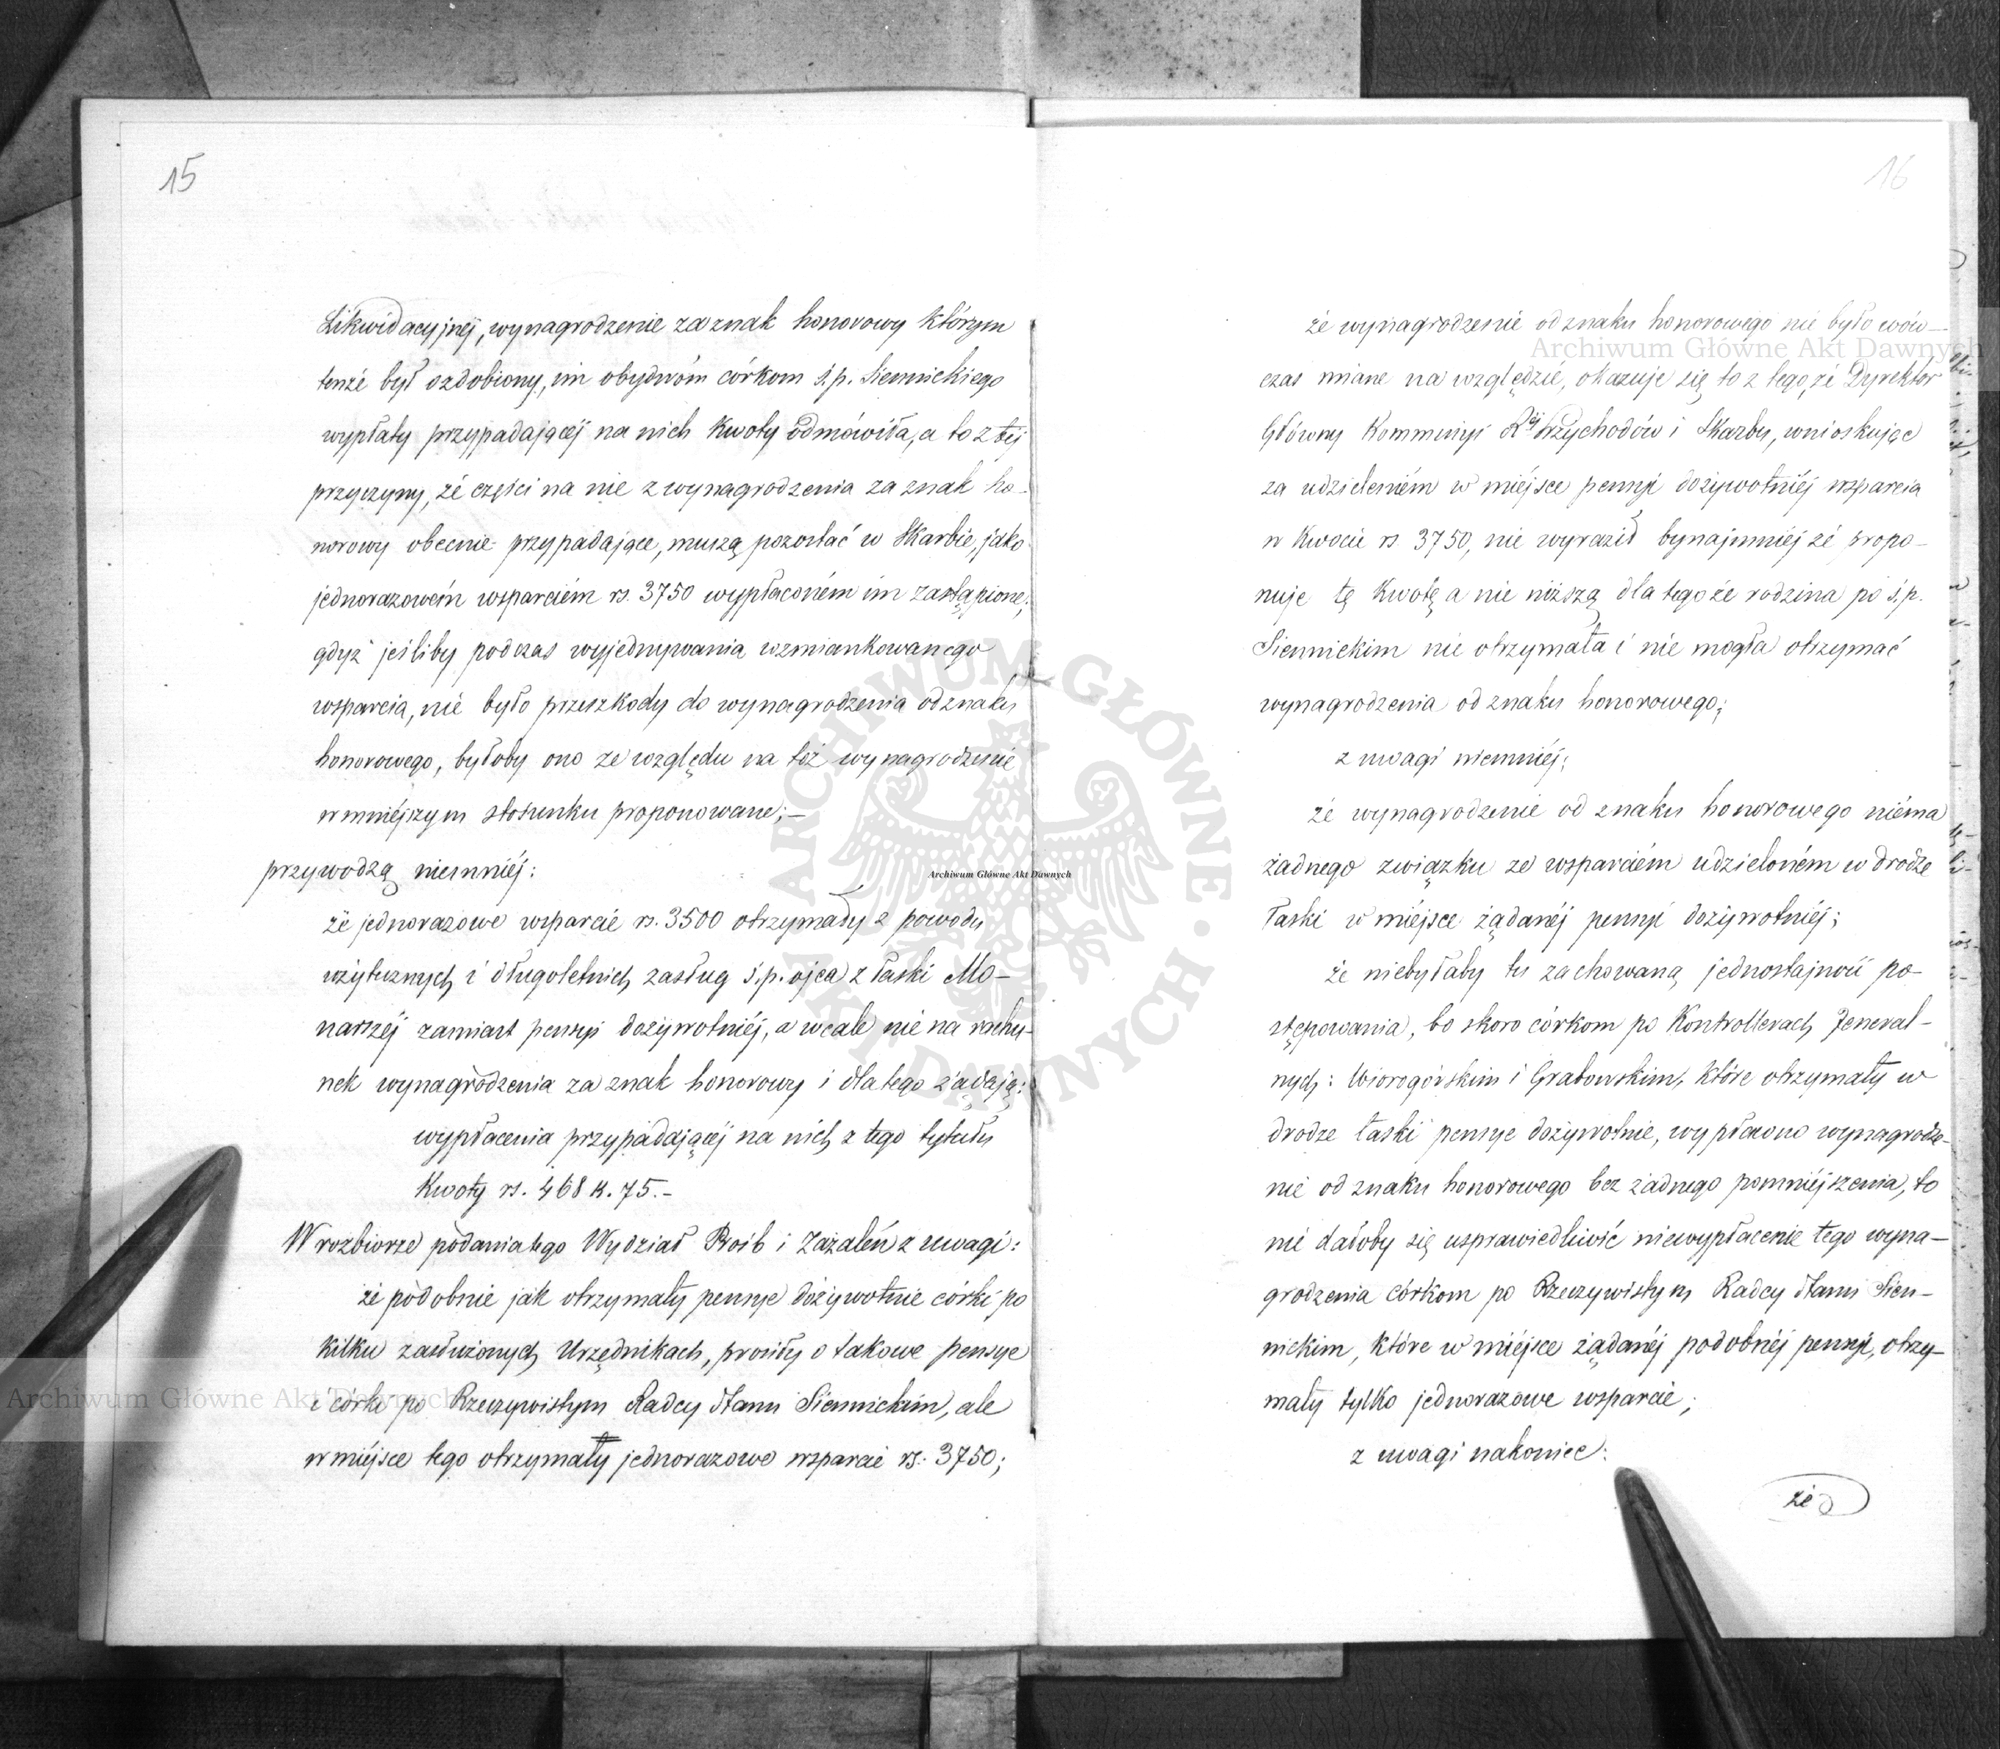 15
Likwidacyjnéj, wynagrodzenie za znak honorowy którym
tenże był ozdobiony, im obydwóm córkom ś.p. Siennickiego
wypłaty przypadającéj na nich Kwoty odmówiła, a to z téj
przyczyny, że części na nie z wynagrodzenia za znak ho-
norowy obecnie przypadające, muszą pozostać w Skarbie, jako
jednorazowém wsparciém rs. 3750 wypłaconém im zastąpione,
gdyż jeśliby podczas wyjednywania wzmiankowanego
wsparcia, nie było przeszkody do wynagrodzenia od znaku
honorowego, byłoby ono ze względu na też wynagrodzenie
w mniéjszym stosunku proponowane;-
przywodzą niemniéj:
że jednorazowe wsparcie rs. 3500 otrzymały z powodu
użytecznych i długoletnich zasług ś.p. ojca z łaski Mo-
narszéj zamiast pensyi dożywotniéj, a wcale nie na rachu-
nek wynagrodzenia za znak honorowy i dlatego żądają:
wypłacenia przypadającéj na nich z tego tytułu
Kwoty rs. 468 k. 75.-
W rozbiorze podania tego Wydział Prośb i Zażaleń z uwagi:
że podobnie jak otrzymały pensye dożywotnie córki po
kilku zasłużonych Urzędnikach, prosiły o takowe pensye
i córki po Rzeczywistym Radcy Stanu Siennickim, ale
w miéjsce tego otrzymały jednorazowo wsparcie rs. 3750;
16
że wynagrodzenie od znaku honorowego nie było wów-
czas miane na względzie, okazuje się to z tego, że Dyrektor
Główny Kommissyi Rij Przychodów i Skarbu, wnioskując
za udzieleniém w miéjsce pensyi dożywotniéj wsparcia
w Kwocie rs 3750, nie wyraził bynajmniéj że propo-
nuje tę Kwotę a nie niższą dla tego że rodzina po ś.p.
Siennickim nie otrzymała i nie mogła otrzymać
wynagrodzenia od znaku honorowego;
z uwagi niemniéj;
że wynagrodzenie od znaku honorowego niéma
żadnego związku ze wsparciém udzieloném w drodze
łaski w miéjsce żądanéj pensyi dożywotniéj;
że niebyłaby tu zachowaną jednostajność po-
stępowania, bo skoro córkom po Kontrollerach Jeneral-
nych: Wiorogórskim i Grabowskim, które otrzymały w
drodze łaski pensye dożywotnie, wypłacono wynagrodze-
nie od znaku honorowego bez żadnego pomniéjszenia, to
nie dałoby się usprawiedliwić niewypłacenie tego wyna-
grodzenia córkom po Rzeczywistym Radcy Stanu Sien-
nickim, które w miéjsce żądanéj podobnéj pensyi, otrzy-
mały tylko jednorazowe wsparcie;
z uwagi nakoniec:
że
Archiwum Główne Akt Dawnych
Archiwum Główne Akt Dawnych
Archiwum Główne Akt Dawnych
ARCHIWUM GŁÓWNE AKT DAWNYCH